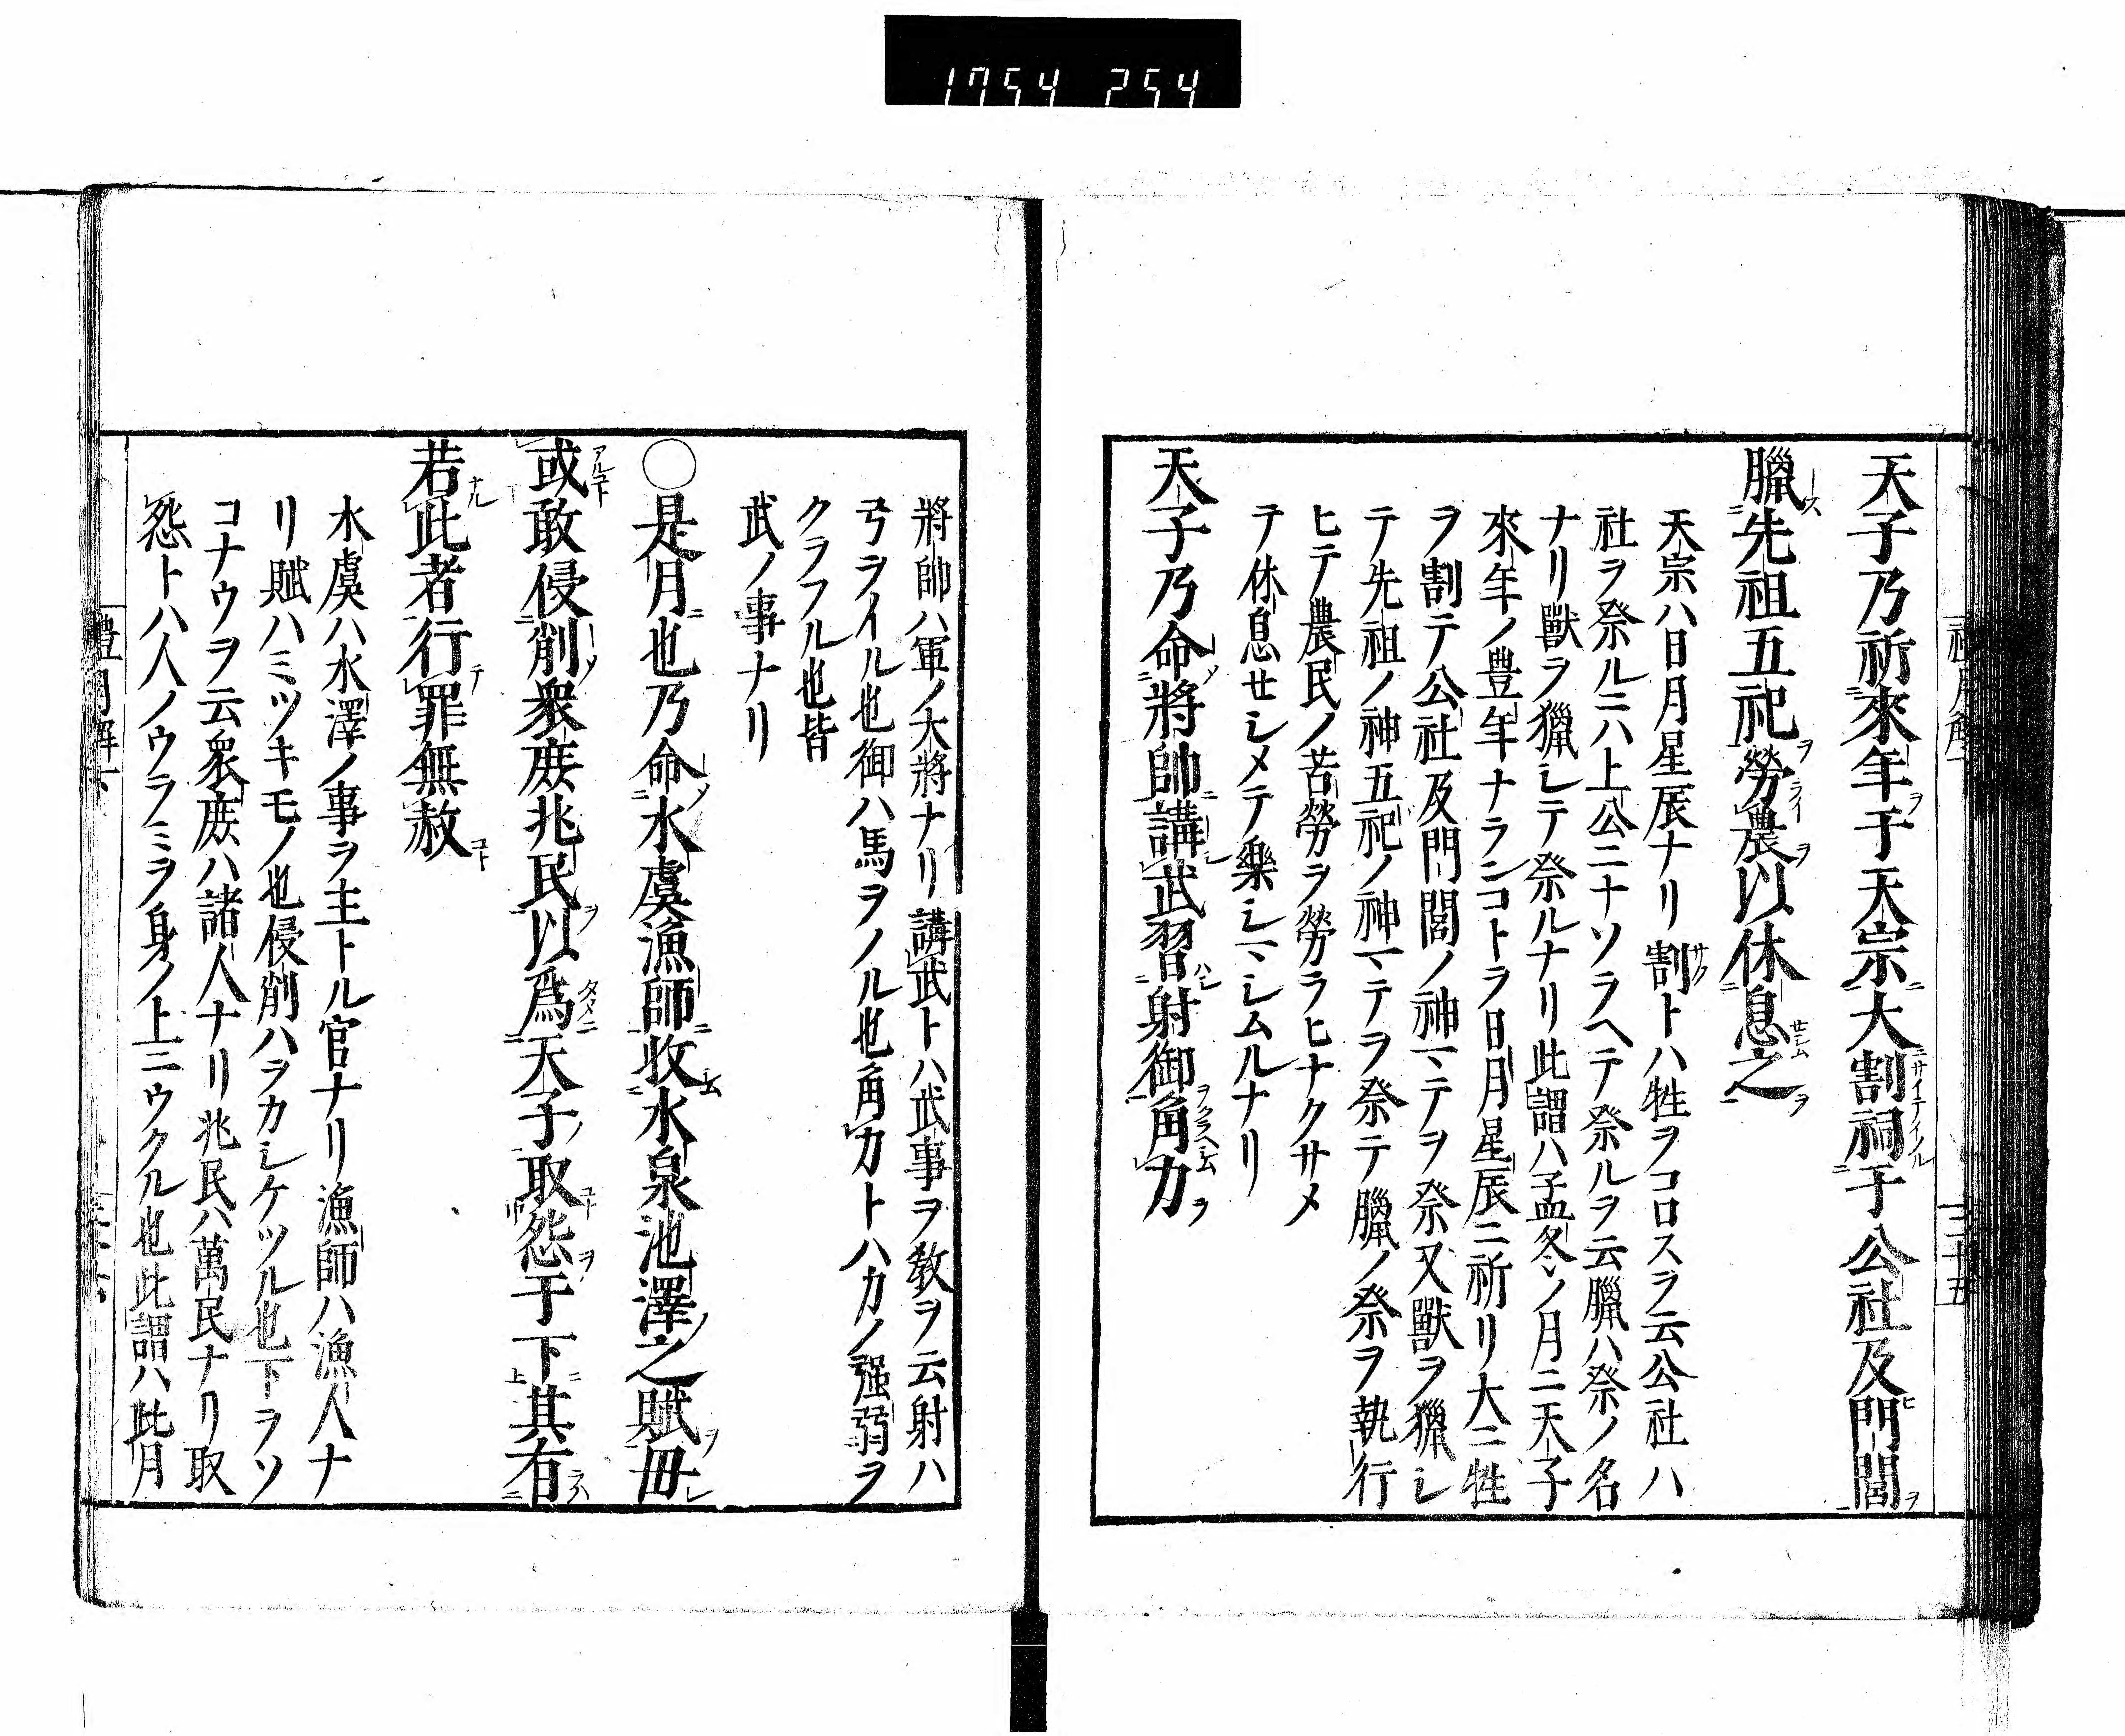 1754 254
天子乃祈來年于天宗大割祠于公社及門閭
臘先祖五祀勞農以休息之
天宗ハ日月星辰ナリ割トハ牲ヲコロスヲ云公社ハ
社ヲ祭ルニハ上公ニナソラヘテ祭ルヲ云臘ハ祭ノ名
ナリ獸ヲ獵シテ祭ルナリ此謂ハ孟冬ノ月ニ天子
來年ノ豊年ナランコトヲ日月星辰ニ祈リ大ニ牲
ヲ割テ公社及門閭ノ神マテヲ祭又獸ヲ獵シ
テ先祖ノ神五祀ノ神マテヲ祭テ臘ノ祭ヲ執行
ヒテ農民ノ苦勞ヲ勞ラヒナクサメ
テ休息セシメテ樂シマシムルナリ
天子乃命將帥講武習射御角力
將帥ハ軍ノ大將ナリ講武トハ武事ヲ教ヲ云射ハ
弓ヲイル也御ハ馬ヲノル也角力トハ力ノ强弱ヲ
クラフル也皆
武ノ事ナリ
〇是月也乃命水虞漁師收水泉池澤之賦毋
或敢侵削衆庶兆民以爲天子取怨于下其有
若此者行罪無赦
水虞ハ水澤ノ事ヲ主トル官ナリ漁師ハ漁人ナ
リ賦ハミツキモノ也侵削ハヲカシケツル也下ヲソ
コナウヲ云衆庶ハ諸人ナリ兆民ハ萬民ナリ取
怨トハ人ノウラミヲ身ノ上ニウクル也此謂ハ此月
禮月解下